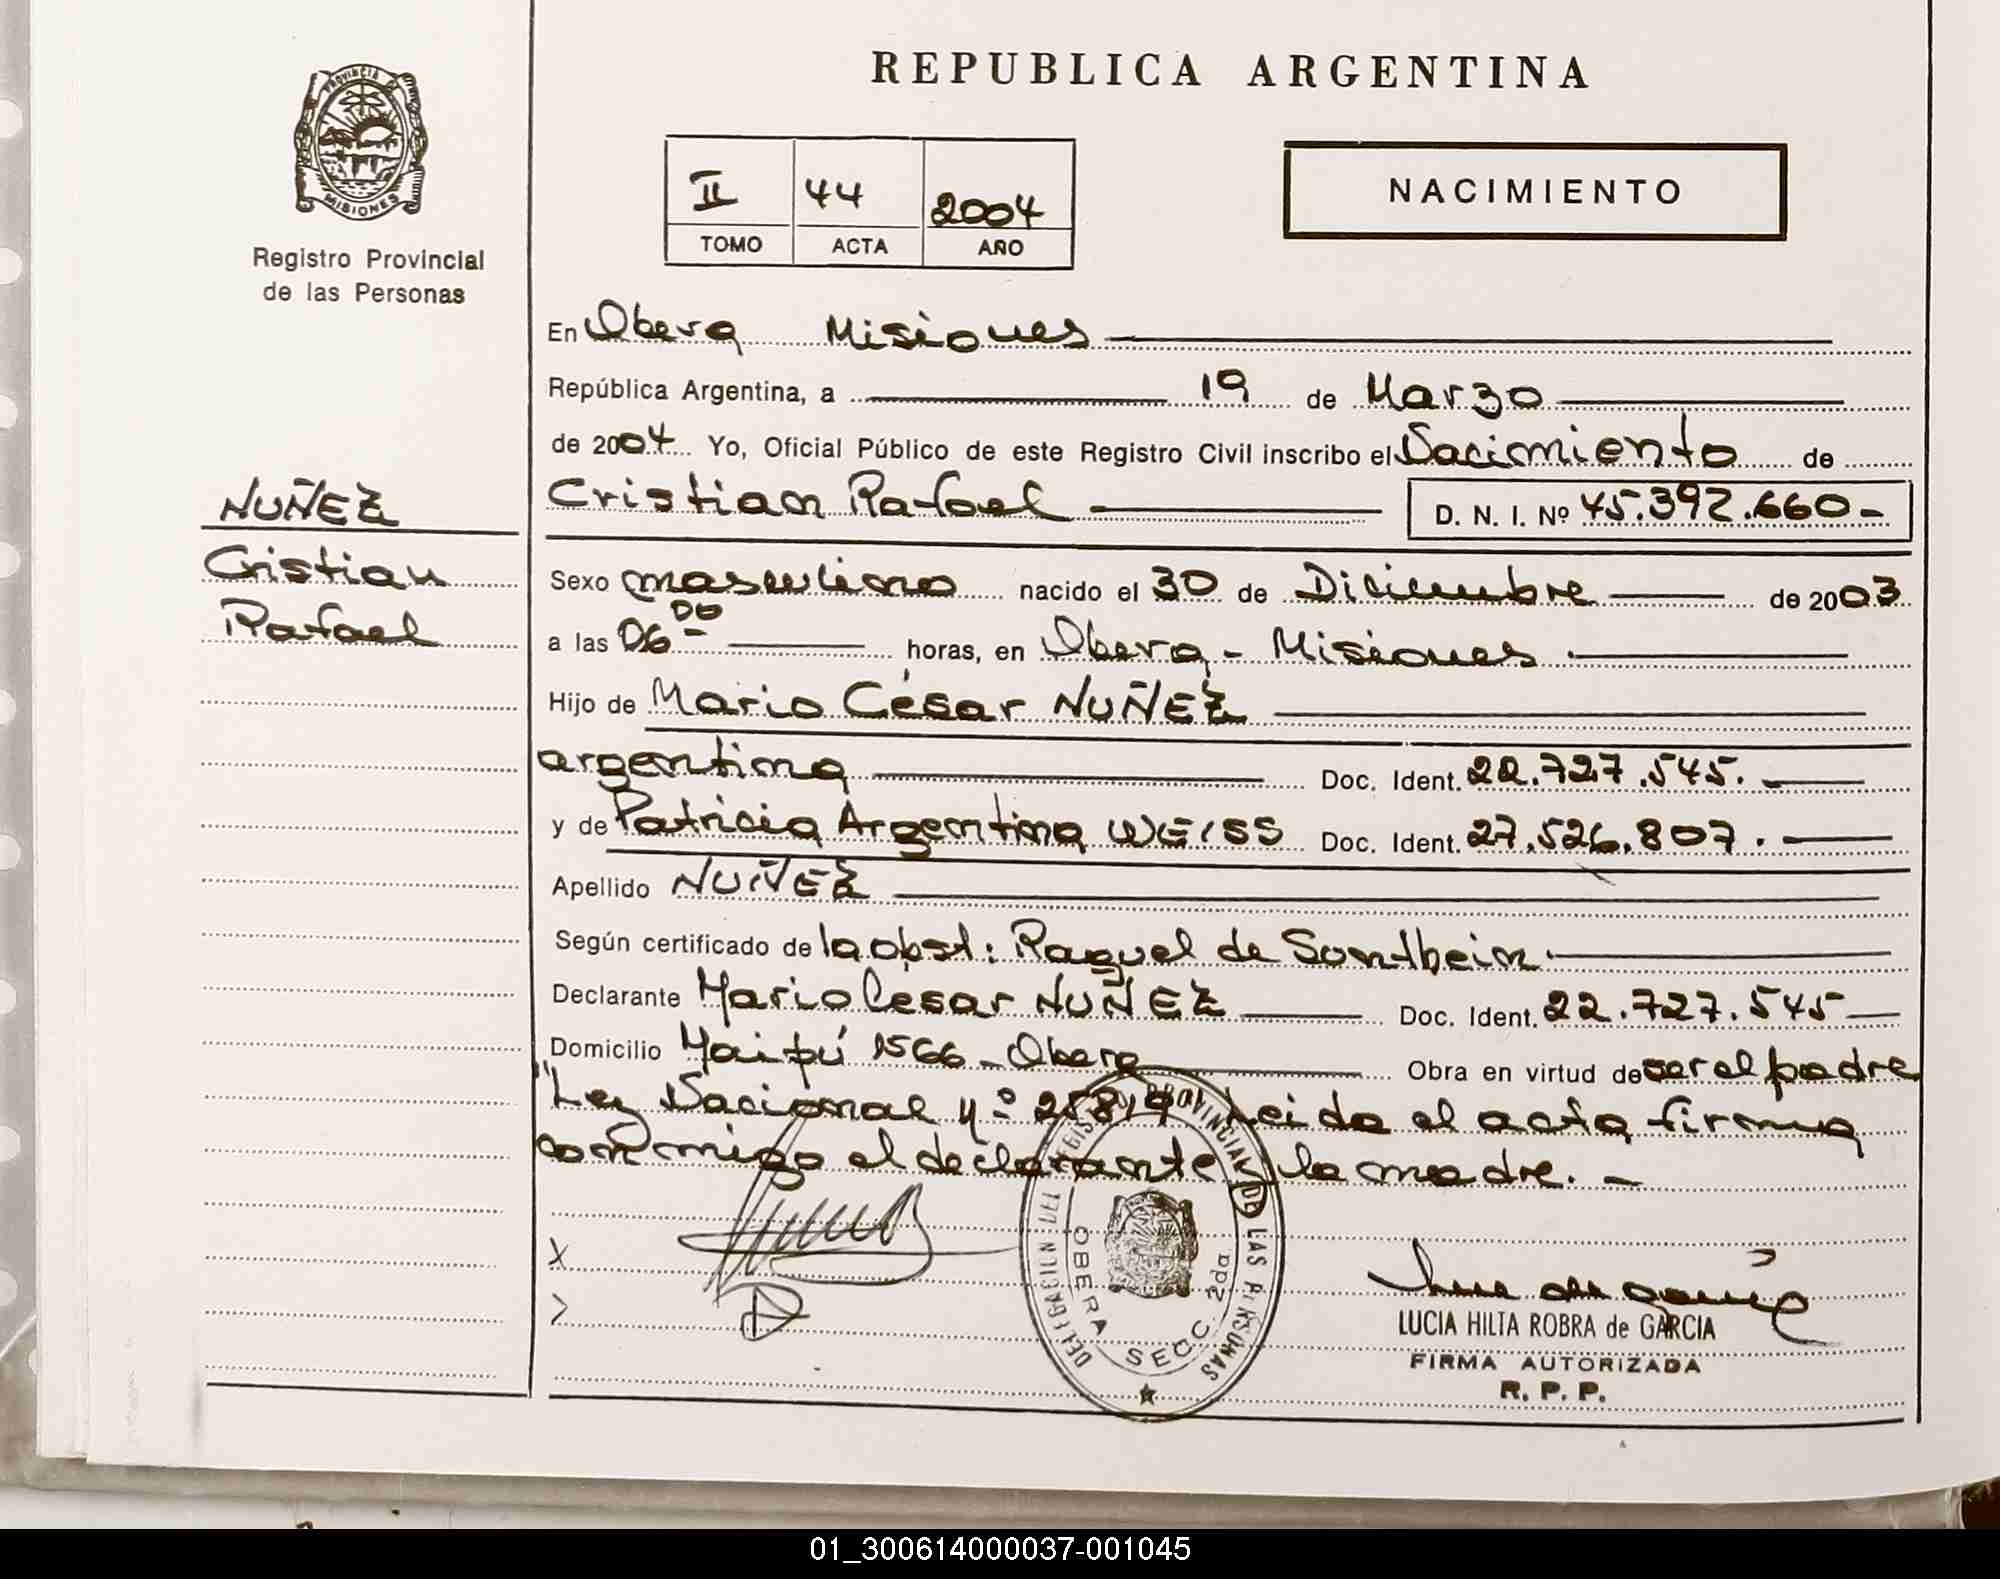 REPUBLICA ARGENTINA
PROVINCIA DE
MISIONES
Registro Provincial
de las Personas
II 44 2004
TOMO ACTA AÑO
NACIMIENTO
NUÑEZ
Cristian
Rafael
En Obera Misiones
República Argentina, a 19 de Marzo
de 2004 Yo, Oficial Público de este Registro Civil inscribo el Nacimiento de
Cristian Rafael D. N. I. Nº 45.392.660-
Sexo masculino nacido el 30 de Diciembre de 2003
a las 06 00 horas, en Obera - Misiones
Hijo de Mario César NUÑEZ
argentina Doc. Ident. 22.727.545.
y de Patricia Argentina WEISS Doc. Ident. 27.526.807.
Apellido NUÑEZ
Según certificado de la obst: Raquel de Sontheim
Declarante Mario Cesar NUÑEZ Doc. Ident. 22.727.545
Domicilio Maipú 1566 - Obera Obra en virtud de ser el padre
"Ley Nacional nº 25819" Leida el acta firma
conmigo el declarante y la madre. -
X
DELEGACION DEL REGISTRO PROVINCIAL DE LAS PERSONAS
OBERA SECC. 2da
LUCIA HILTA ROBRA de GARCIA
FIRMA AUTORIZADA
R. P. P.
01_300614000037-001045